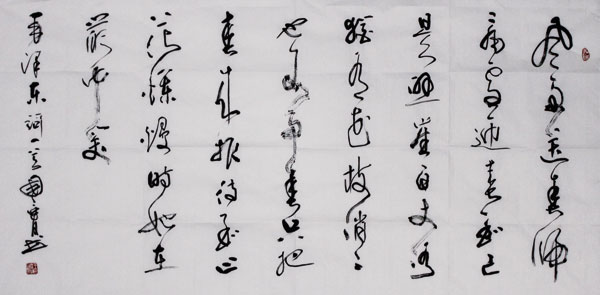 风雨送春归
飞雪迎春到已
是悬崖百丈冰
犹有花枝俏〻
也不争春只把
春来报待到山
花烂熳时她在
丛中笑
毛泽东词一首国宝书